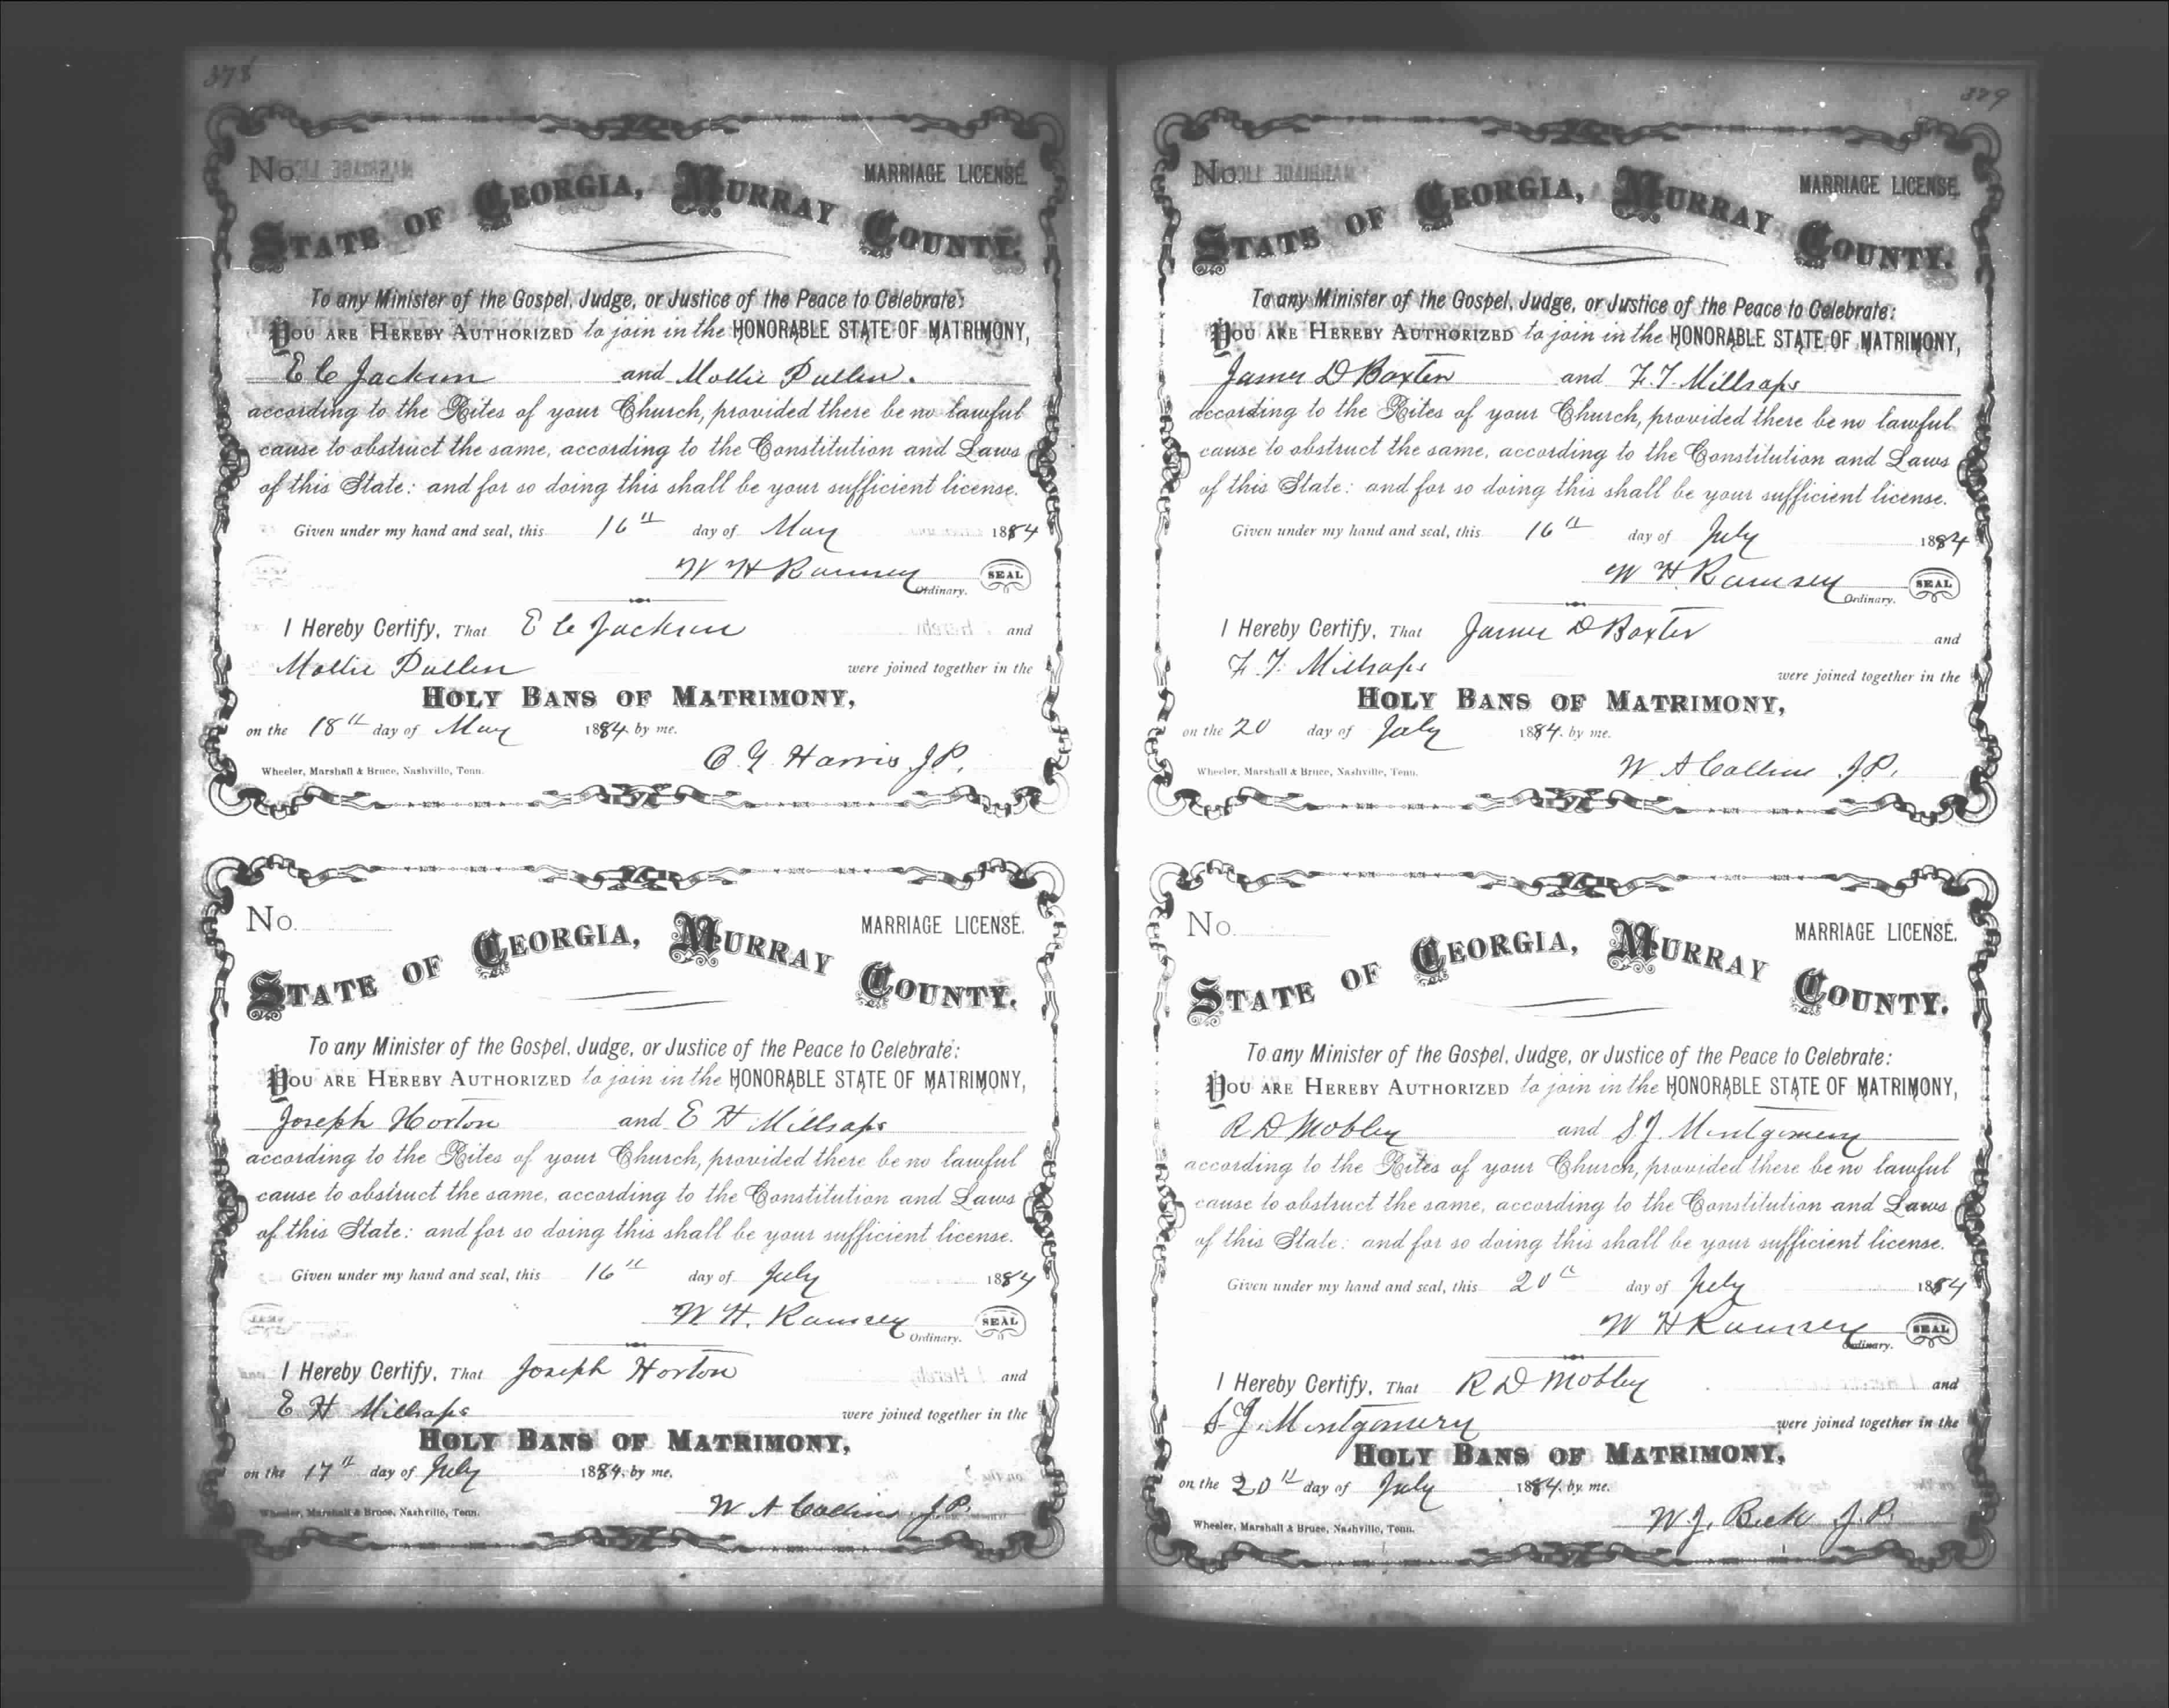 378
No. MARRIAGE LICENSE.
STATE OF GEORGIA, MURRAY COUNTY.
To any Minister of the Gospel, Judge, or Justice of the Peace to Celebrate:
YOU ARE HEREBY AUTHORIZED to join in the HONORABLE STATE OF MATRIMONY,
E C Jackson and Mollie Pullen.
according to the Rites of your Church, provided there be no lawful
cause to obstruct the same, according to the Constitution and Laws
of this State: and for so doing this shall be your sufficient license.
Given under my hand and seal, this 16th day of May 1884
W H Ramsey SEAL
Ordinary.
I Hereby Certify, That E C Jackson and
Mollie Pullen were joined together in the
HOLY BANS OF MATRIMONY,
on the 18th day of May 1884. by me.
C. Y. Harris J.P.
Wheeler, Marshall & Bruce, Nashville, Tenn.
No. MARRIAGE LICENSE.
STATE OF GEORGIA, MURRAY COUNTY.
To any Minister of the Gospel, Judge, or Justice of the Peace to Celebrate:
YOU ARE HEREBY AUTHORIZED to join in the HONORABLE STATE OF MATRIMONY,
Joseph Horton and E H Millsaps
according to the Rites of your Church, provided there be no lawful
cause to obstruct the same, according to the Constitution and Laws
of this State: and for so doing this shall be your sufficient license.
Given under my hand and seal, this 16th day of July 1884
W. H. Ramsey SEAL
Ordinary.
I Hereby Certify, That Joseph Horton and
E H Millsaps were joined together in the
HOLY BANS OF MATRIMONY,
on the 17th day of July 1884. by me.
W A Collins J.P.
Wheeler, Marshall & Bruce, Nashville, Tenn.
379
No. MARRIAGE LICENSE.
STATE OF GEORGIA, MURRAY COUNTY.
To any Minister of the Gospel, Judge, or Justice of the Peace to Celebrate:
YOU ARE HEREBY AUTHORIZED to join in the HONORABLE STATE OF MATRIMONY,
James D Baxter and F. T. Millsaps
according to the Rites of your Church, provided there be no lawful
cause to obstruct the same, according to the Constitution and Laws
of this State: and for so doing this shall be your sufficient license.
Given under my hand and seal, this 16th day of July 1884
W H Ramsey SEAL
Ordinary.
I Hereby Certify, That James D Baxter and
F. T. Millsaps were joined together in the
HOLY BANS OF MATRIMONY,
on the 20 day of July 1884. by me.
W. A Collins J.P.
Wheeler, Marshall & Bruce, Nashville, Tenn.
No. MARRIAGE LICENSE.
STATE OF GEORGIA, MURRAY COUNTY.
To any Minister of the Gospel, Judge, or Justice of the Peace to Celebrate:
YOU ARE HEREBY AUTHORIZED to join in the HONORABLE STATE OF MATRIMONY,
R D Mobley and S. J. Montgomery
according to the Rites of your Church, provided there be no lawful
cause to obstruct the same, according to the Constitution and Laws
of this State: and for so doing this shall be your sufficient license.
Given under my hand and seal, this 20th day of July 1884
W H Ramsey SEAL
Ordinary.
I Hereby Certify, That R D Mobley and
S. J. Montgomery were joined together in the
HOLY BANS OF MATRIMONY,
on the 20th day of July 1884. by me.
W. J. J.P.
Wheeler, Marshall & Bruce, Nashville, Tenn.